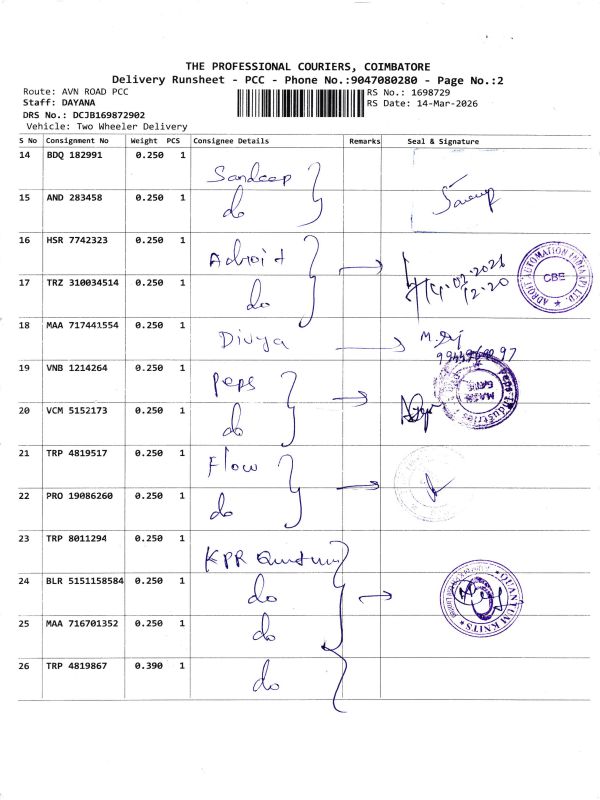 THE PROFESSIONAL COURIERS, COIMBATORE
Delivery Runsheet - PCC - Phone No.:9047080280 - Page No.:2
Route: AVN ROAD PCC
RS No.: 1698729
Staff: DAYANA
RS Date: 14-Mar-2026
DRS No.: DCJB169872902
Vehicle: Two Wheeler Delivery
S No Consignment No Weight PCS Consignee Details Remarks Seal & Signature
14 BDQ 182991 0.250 1 Sandeep
15 AND 283458 0.250 1 do
16 HSR 7742323 0.250 1 Adroit
ADROIT AUTOMATION INDIA (P) LTD. CBE
17 TRZ 310034514 0.250 1 do 12.20
18 MAA 717441554 0.250 1 Divya
19 VNB 1214264 0.250 1 Peps
20 VCM 5152173 0.250 1 do
21 TRP 4819517 0.250 1 Flow
22 PRO 19086260 0.250 1 do
23 TRP 8011294 0.250 1 KPR
24 BLR 5151158584 0.250 1 do
QUANTUM KNITS
25 MAA 716701352 0.250 1 do
26 TRP 4819867 0.390 1 do